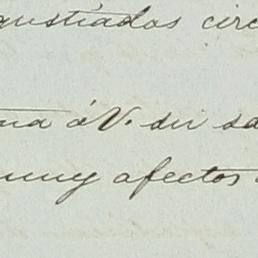 gustiadas circ
ma á V. su sa
muy afectos